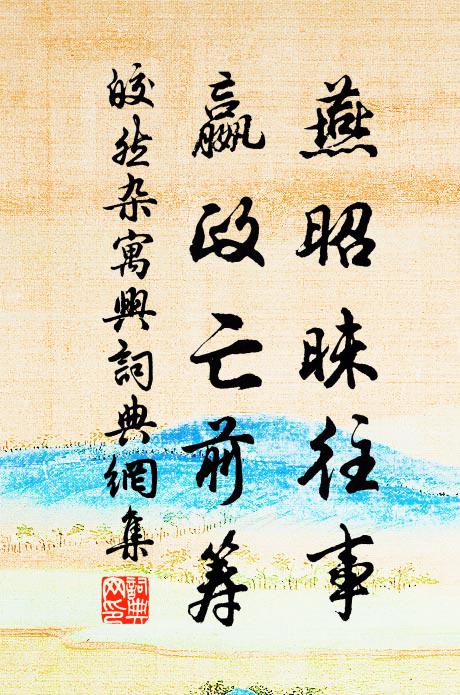 燕昭昧往事
嬴政亡前筹
皎然杂寓興詞典網集
詞典網印